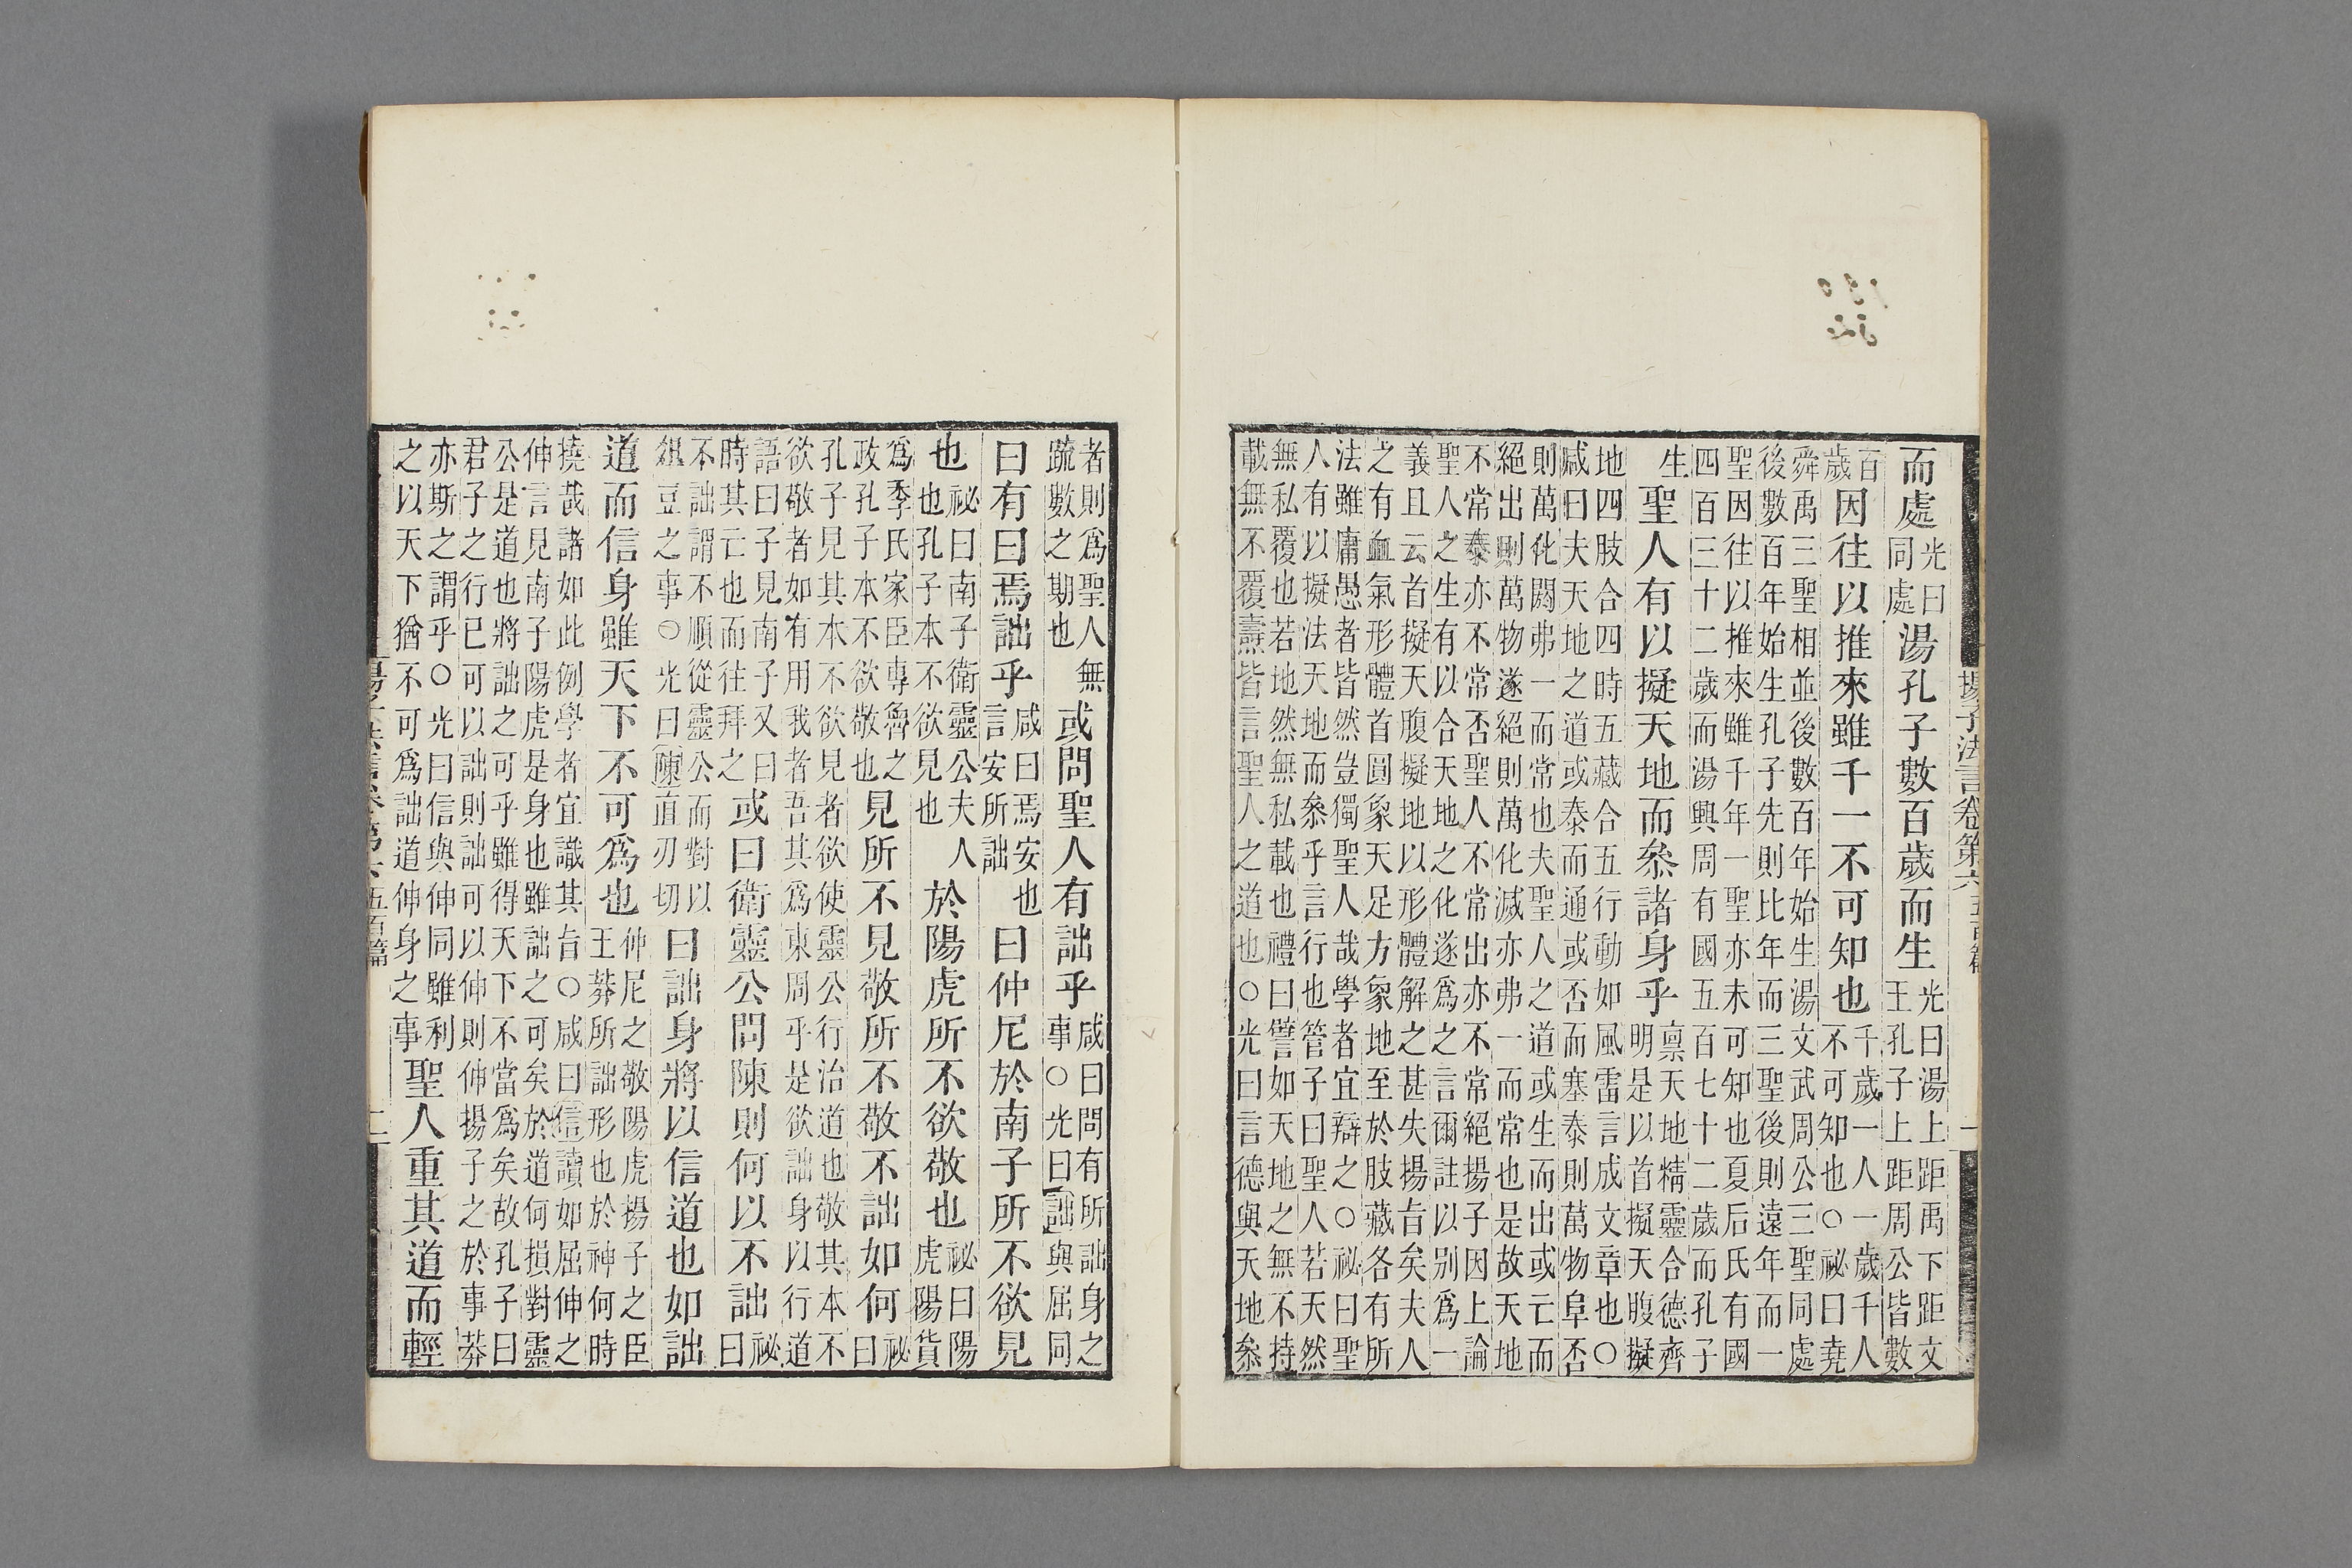 揚子法言卷第六五百篇 一
而處光曰同處湯孔子數百歲而生光曰湯上距禹下距文王孔子上距周公皆數
百歲因往以推來雖千一不可知也千歲一人一歲千人不可知也○祕曰堯
舜禹三聖相並後數百年始生湯文武周公三聖同處
後數百年始生孔子先則比年而三聖後則遠年而一
聖因往以推來雖千年一聖亦未可知也夏后氏有國
四百三十二歲而湯興周有國五百七十二歲而孔子
生聖人有以擬天地而叅諸身乎稟天地精靈合德齊明是以首擬天腹擬
地四肢合四時五藏合五行動如風雷言成文章也○
咸曰夫天地之道或泰而通或否而塞泰則萬物阜否
則萬化閼弗一而常也夫聖人之道或生而出或亡而
絕出則萬物遂絕則萬化滅亦弗一而常也是故天地
不常泰亦不常否聖人不常出亦不常絕揚子因上論
聖人之生有以合天地之化遂爲之言爾註以別爲一
義且云首擬天腹擬地以形體解之甚失揚旨矣夫人
之有血氣形體首圓象天足方象地至於肢藏各有所
法雖庸愚者皆然豈獨聖人哉學者宜辯之○祕曰聖
人有以擬法天地而叅乎言行也管子曰聖人若天然
無私覆也若地然無私載也禮曰譬如天地之無不持
載無不覆燾皆言聖人之道也○光曰言德與天地叅
者則爲聖人無疏數之期也或問聖人有詘乎咸曰問有所詘身之事○光曰詘與屈同
曰有曰焉詘乎咸曰焉安也言安所詘曰仲尼於南子所不欲見
也祕曰南子衛靈公夫人也孔子本不欲見也於陽虎所不欲敬也祕曰陽虎陽貨
爲季氏家臣專魯之政孔子本不欲敬也見所不見敬所不敬不詘如何祕曰
孔子見其本不欲見者欲使靈公行治道也敬其本不
欲敬者如有用我者吾其爲東周乎是欲詘身以行道
語曰子見南子又曰時其亡也而往拜之或曰衛靈公問陳則何以不詘祕曰
不詘謂不順從靈公而對以俎豆之事○光曰陳直刃切曰詘身將以信道也如詘
道而信身雖天下不可爲也仲尼之敬陽虎揚子之臣王莽所詘形也於神何時
撓哉諸如此例學者宜識其旨○咸曰信讀如屈伸之
伸言見南子陽虎是身也雖詘之可矣於道何損對靈
公是道也將詘之可乎雖得天下不當爲矣故孔子曰
君子之行已可以詘則詘可以伸則伸揚子之於事莽
亦斯之謂乎○光曰信與伸同雖利之以天下猶不可爲詘道伸身之事聖人重其道而輕
揚子法言卷第六五百篇 二